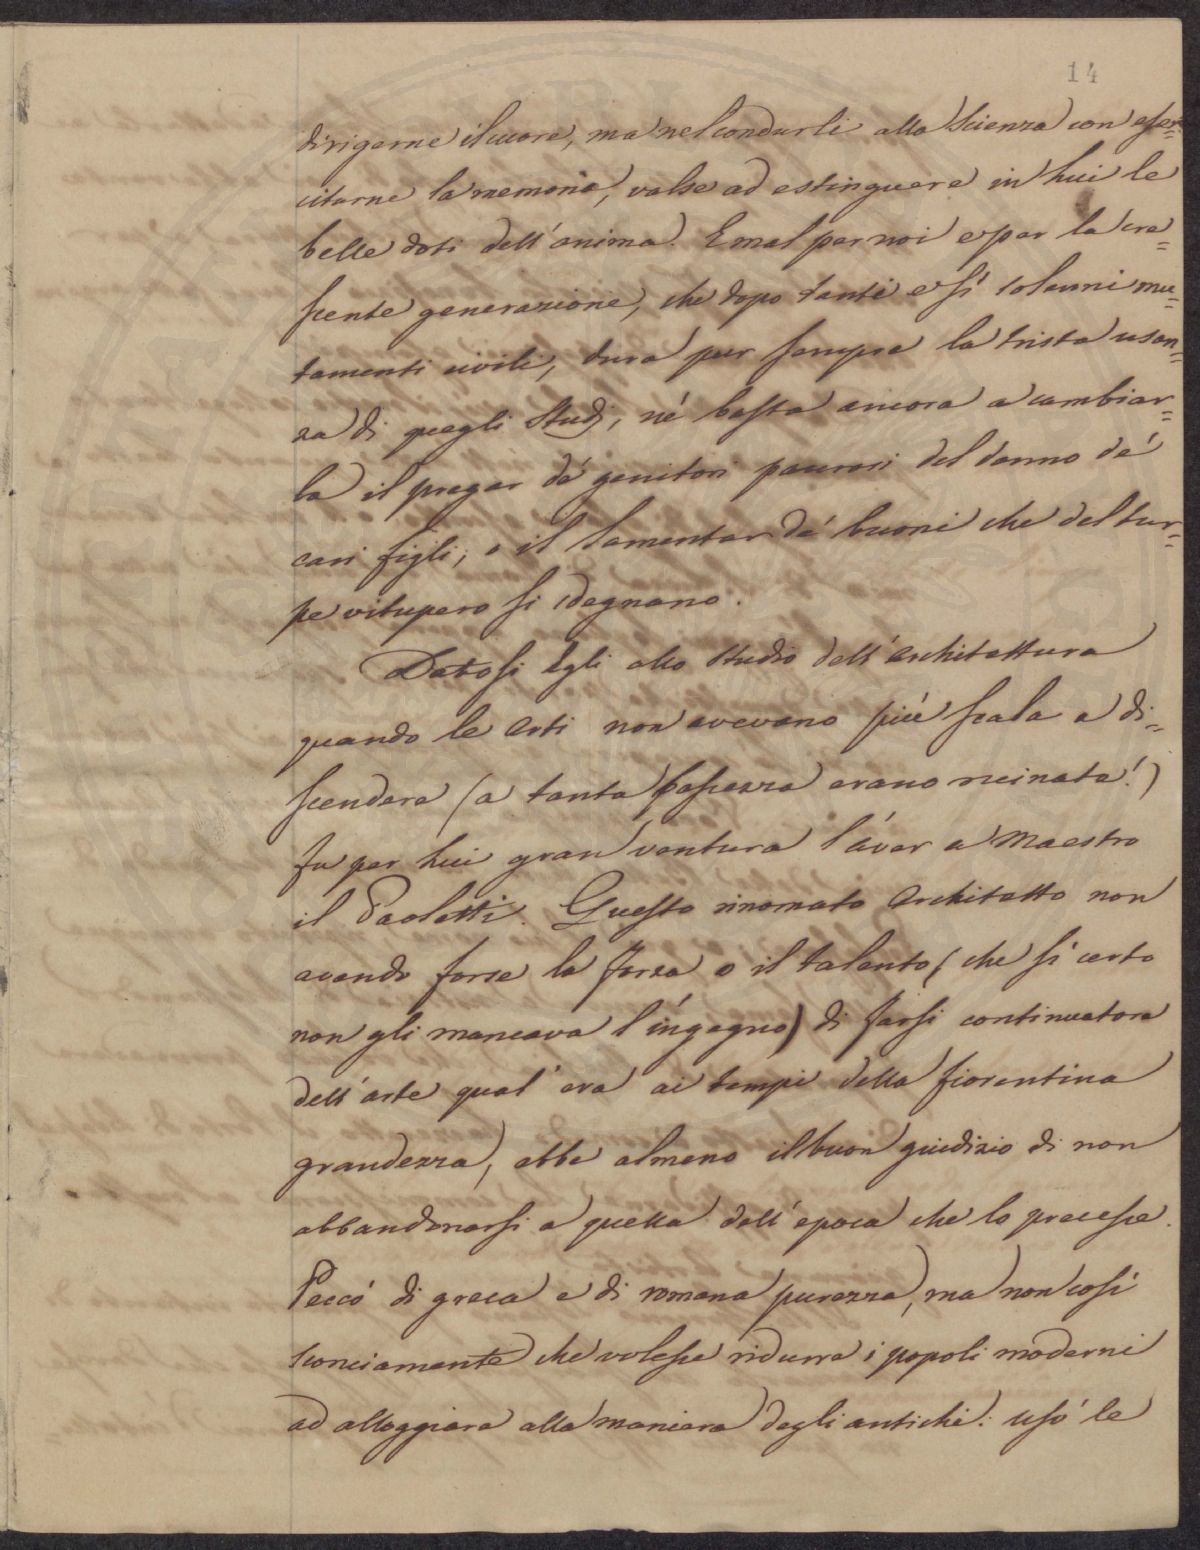 14
dirigerne il cuore, ma nel condurli alla Scienza con eser=
citarne la memoria, valse ad estinguere in Lui le
belle doti dell'anima. E mal per noi e per la cre=
scente generazione, che dopo tanti e sì solenni mu=
tamenti civili, dura pur sempre la trista usan=
za di quegli Studj, nè basta ancora a cambiar=
la il pregar dè genitori paurosi del danno dè
cari figli, o il lamentar dè buoni che del tur=
pe vitupero si sdegnano.
Datosi Egli allo Studio dell'Architettura
quando le Arti non avevano più scala a di=
scendere (a tanta bassezza erano ruinate!)
fu per Lui gran ventura l'aver a Maestro
il Paoletti. Questo rinomato Architetto non
avendo forse la forza o il talento (che sì certo
non gli mancava l'ingegno) di farsi continuatore
dell'arte qual'era ai tempi della fiorentina
grandezza, ebbe almeno il buon giudizio di non
abbandonarsi a quella dell'epoca che lo precesse.
Peccò di greca e di romana purezza, ma non così
sconciamente che volesse ridurre i popoli moderni
ad alloggiare alla maniera degli antichi: usò le